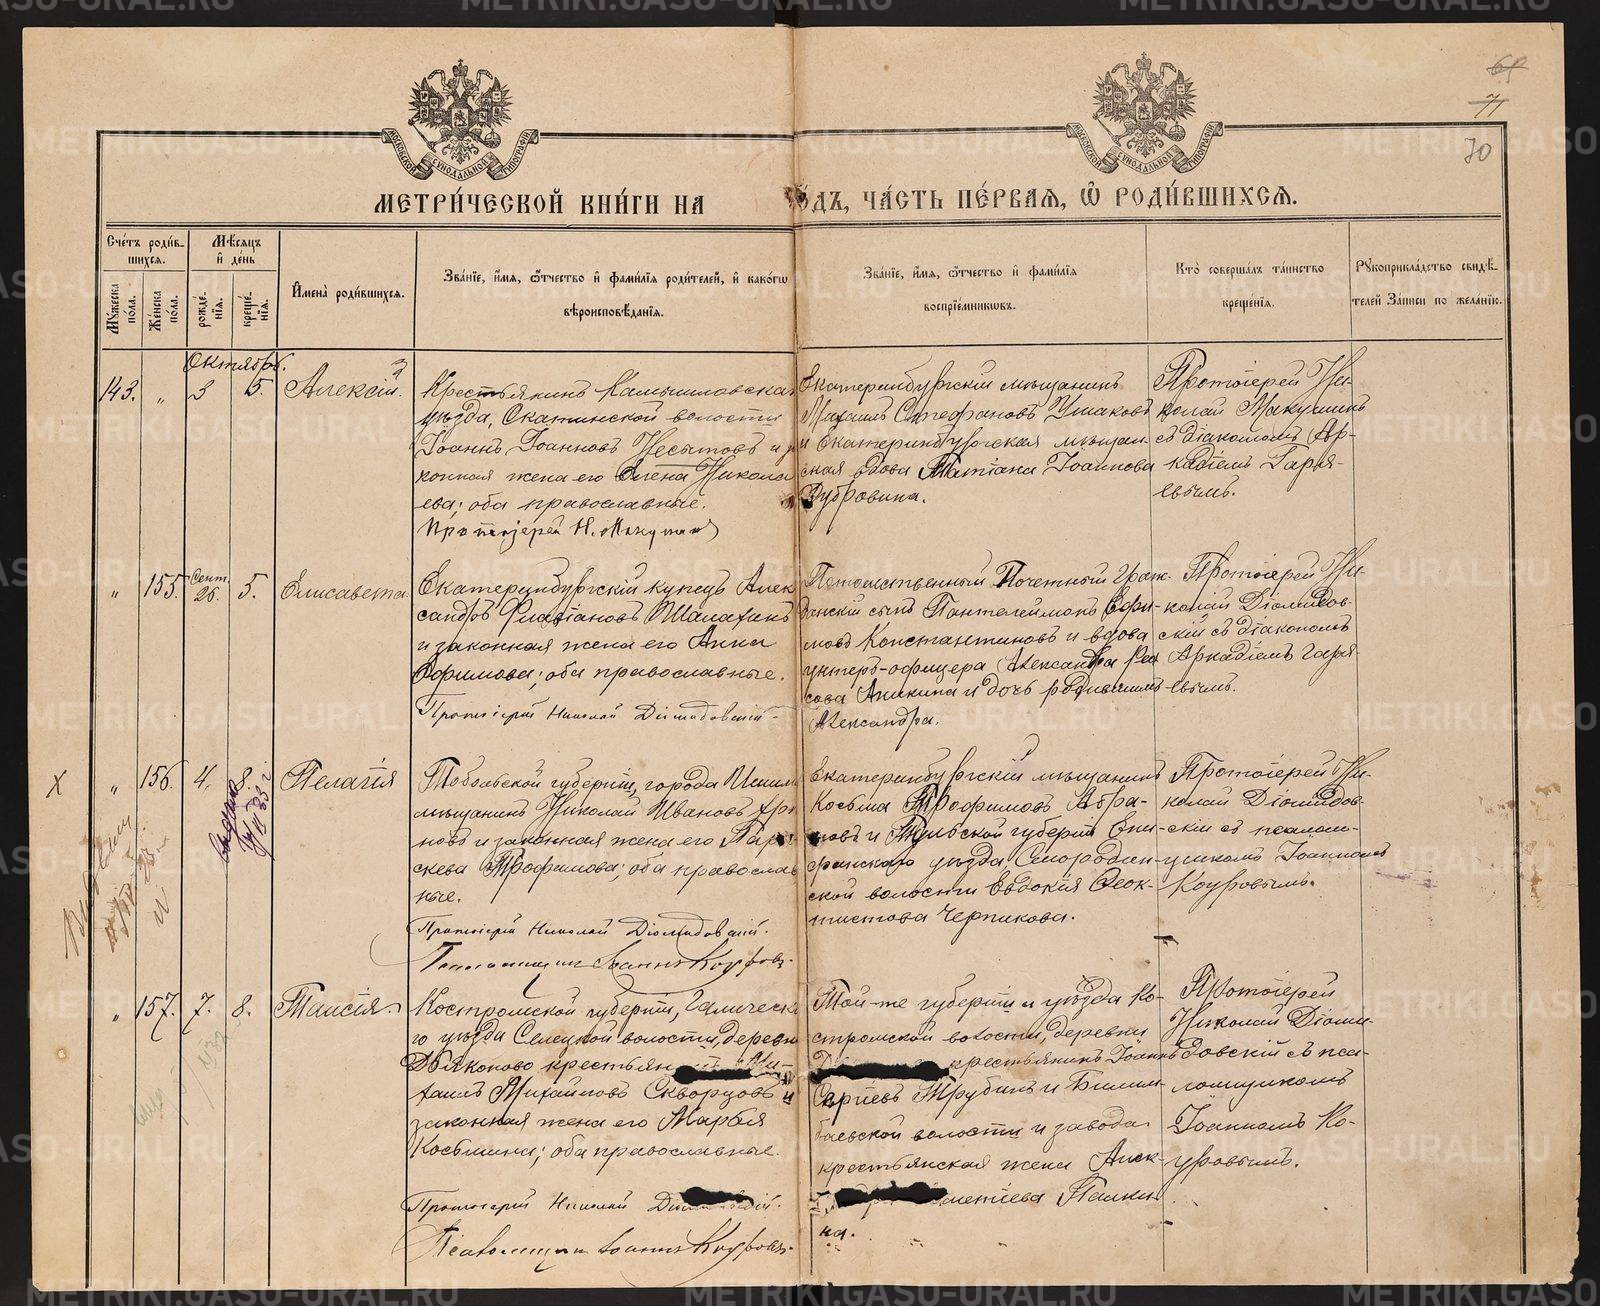 69
71
70
МОСКОВСКОЙ СѴНОДАЛЬНОЙ ТИПОГРАФІИ
МОСКОВСКОЙ СѴНОДАЛЬНОЙ ТИПОГРАФІИ
МЕТРИ́ЧЕСКОЙ КНИ́ГИ НА ГО́ДЪ, ЧА́СТЬ ПЕ́РВАѦ, Ѡ РОДИ́ВШИХСѦ.
Сче́тъ роди́в-
шихсѧ.
Му́жеска по́ла.
Же́нска по́ла.
Мѣ́сяцъ и де́нь
рожде́-
нїѧ.
креще́-
нїѧ.
И҆мена̀ роди́вшихсѧ.
Зва́нїе, и҆́мѧ, ѻ҆́тчество и҆ фами́лїѧ роди́телей, и҆ како́гѡ
вѣроисповѣ́данїѧ.
Зва́нїе, и҆́мѧ, ѻ҆́тчество и҆ фами́лїѧ
воспрїе́мникѡвъ.
Кто̀ соверша́лъ та́инство
креще́нїѧ.
Рꙋкоприкла́дство свидѣ́-
телей за́писи по жела́нїю.
Октябрь.
143. „ 3 5. Алексій.
Крестьянинъ Камышловскаго
уѣзда, Скатинской волости
Іоаннъ Іоанновъ Несытовъ и за
конная жена его Елена Никола
ева; оба православные.
Протоіерей Н. Макушин
Екатеринбургскій мѣщанинъ
Михаилъ Стефановъ Ушаковъ
и Екатеринбургская мѣщан-
ская вдова Татіана Іоаннова
Дубровина.
Протоіерей Ни-
колай Макушинъ
съ діакономъ Ар-
кадіемъ Гаря-
евымъ.
„ 155. Сент. 26. 5. Елисавета.
Екатеринбургскій купецъ Алек
сандръ Флавіановъ Шалахинъ
и законная жена его Анна
Ефимова; оба православные.
Протоіерей Николай Діомидовскій.
Потомственный Почетный граж-
данскій сынъ Пантелеймонъ Ефи-
мовъ Константиновъ и вдова
унтеръ-офицера Александра
сова Аникина и дочь родившихъ
Александра.
Протоіерей Ни-
колай Діомидов-
скій съ діакономъ
Аркадіемъ Гаря-
евымъ.
Х „ 156. 4. 8. Пелагія
Тобольской губерніи, города Ишима
мѣщанинъ Николай Ивановъ
новъ и законная жена его Пара
скева Трофимова; оба православ
ные.
Протоіерей Николай Діомидовскій.
Псаломщикъ Іоаннъ Коуровъ.
Екатеринбургскій мѣщанинъ
Косьма Трофимовъ Абра-
мовъ и Тульской губерніи Епи-
фанскаго уѣзда, Смородин-
ской волости Евдокія Ѳеок-
тистова Черпикова.
Протоіерей Ни-
колай Діомидов-
скій съ псалом-
щикомъ Іоанномъ
Коуровымъ.
„ 157. 7. 8. Таисія.
Костромской губерніи, Галическа
го уѣзда Селецкой волости, деревни
Дьяконово крестьян Ми-
хаилъ Михайловъ Скворцовъ и
законная жена его Марѳа
Косьмина; оба православные.
Протоіерей Николай
Псаломщикъ Іоаннъ Коуровъ.
Той-же губерніи и уѣзда Ко-
стромской волости, деревни
крестьянинъ Іоаннъ
Сергіевъ Трубинъ и Билим-
баевской волости и завода
крестьянская жена Алек-
ментіева Палки
на.
Протоіерей
Николай Діоми-
довскій съ пса-
ломщикомъ
Іоанномъ Ко-
уровымъ.
METRIKI.GASO-URAL.RU